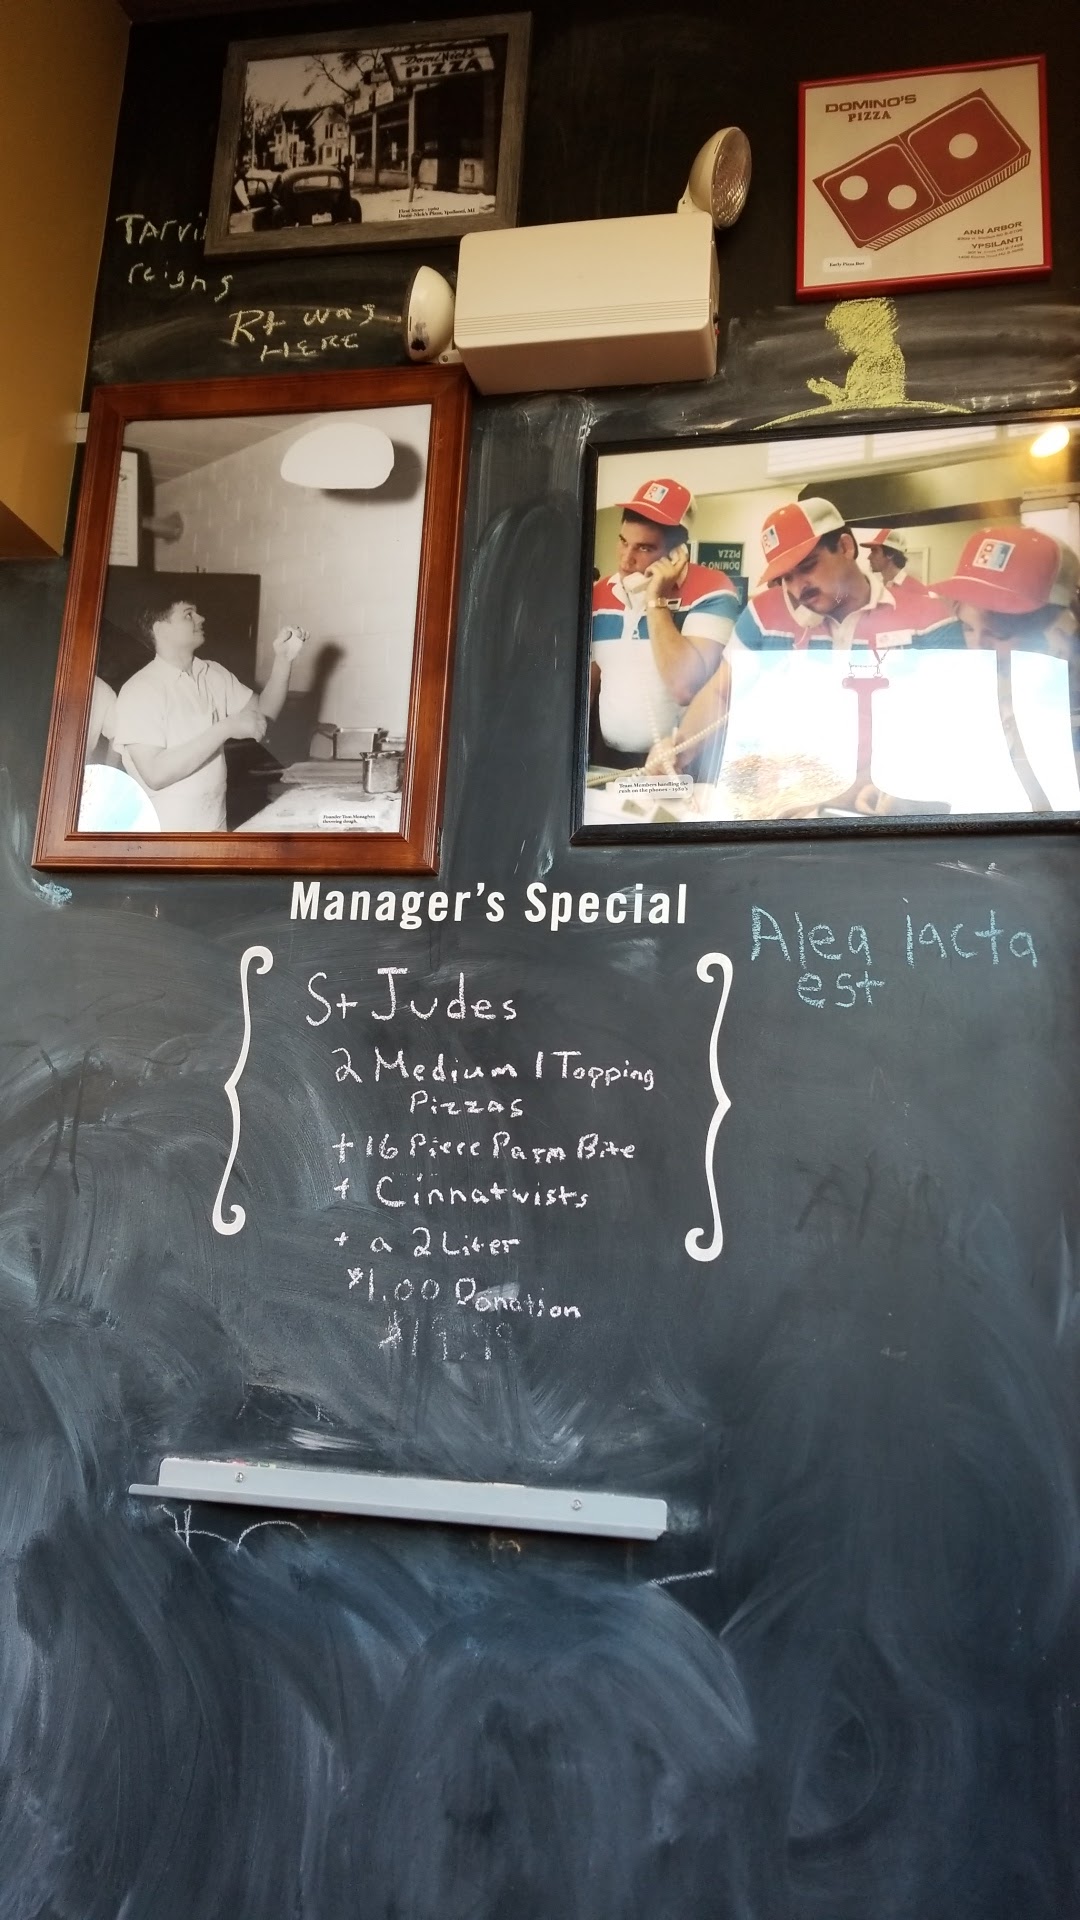 Domi-Nick's
PIZZA
First Store - 1960
Domi-Nick's Pizza, Ypsilanti, MI
DOMINO'S
PIZZA
ANN ARBOR
YPSILANTI
Early Pizza Box
reigns
Rt was
HERE
DOMINO'S
PIZZA
Team Members handling the
rush on the phones - 1980's
Founder Tom Monaghan
throwing dough.
Manager's Special
St Judes
2 Medium 1 Topping
Pizzas
+ 16 Piece Parm Bite
+ Cinnatwists
+ a 2 Liter
$1.00 Donation
Alea iacta
est